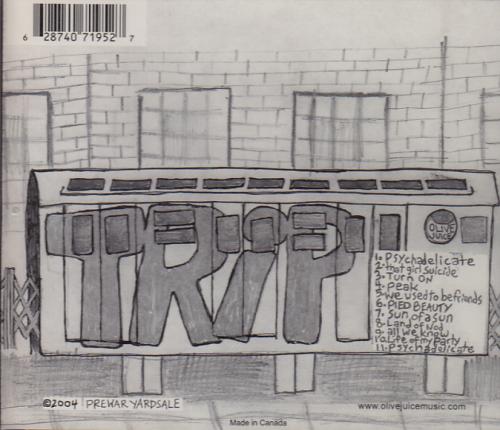 6 28740 71952 7
TRIP
OLIVE
JUICE
1. Psychadelicate
2. that girl suicide
3. Turn On
4. Peak
5. We used to be friends
6. PIED BEAUTY
7. Sun of a Sun
8. Land of Nod
9. all we know
10. Life of my Party
11. Psychadelicate
©2004 PREWAR YARDSALE
www.olivejuicemusic.com
Made in Canada